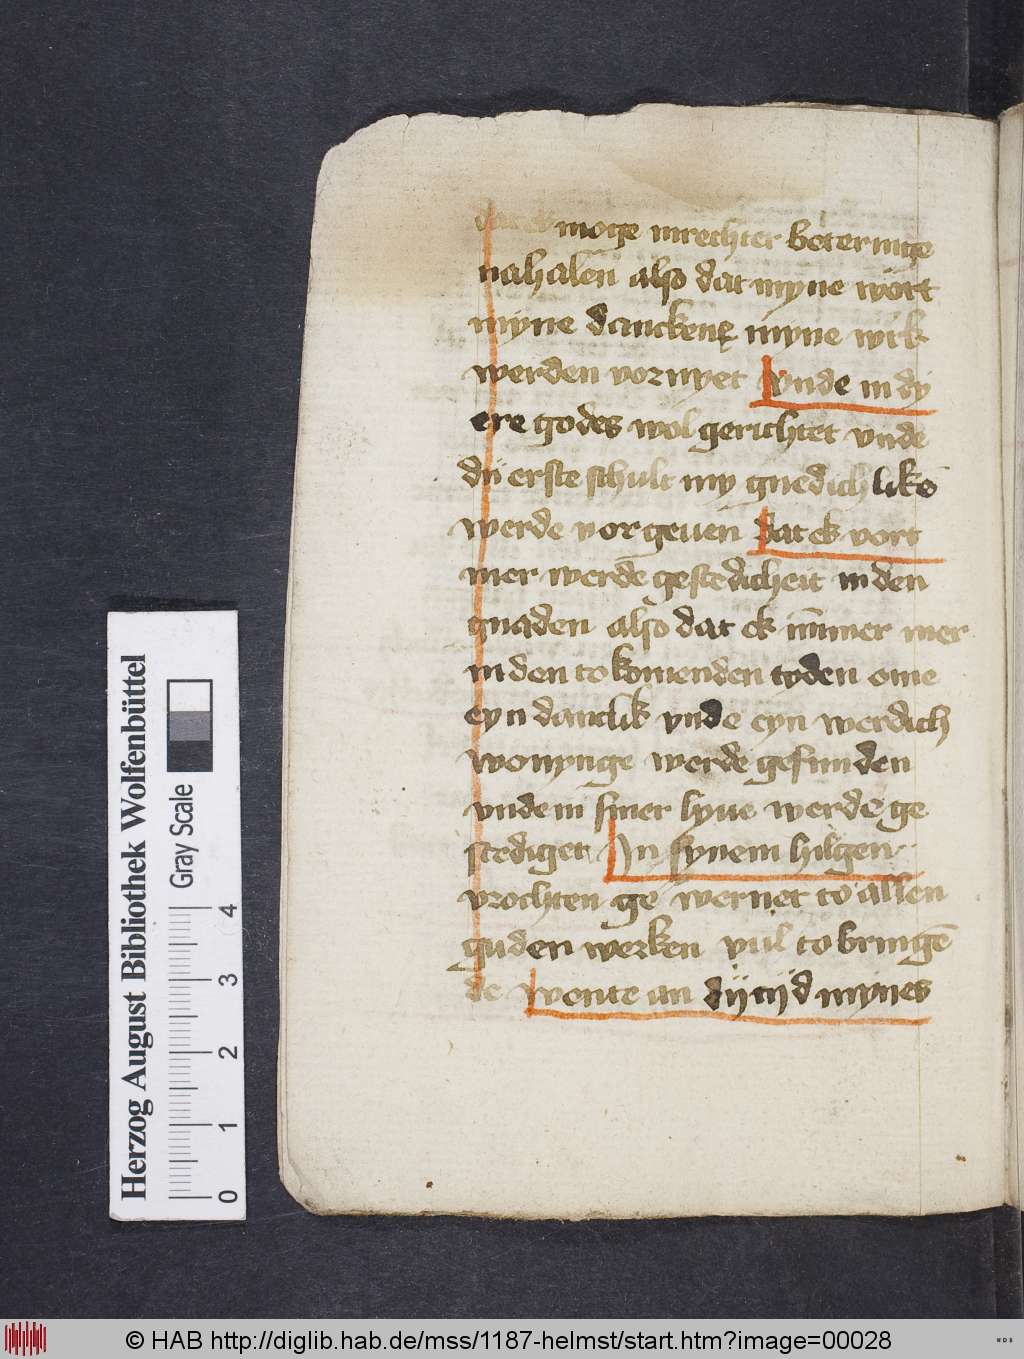 moge in rechter beteringe
nahalen also dat myne wort
myne dancken myne wrk
werden vornyet Vnde in dy
ere godes wol gerichtet vnde
dy erste schult my gnedichlikē
werde vorgeuen dat ek vort
mer werde gestedicheit in den
gnaden also dat ek ūmmer mer
in den to komenden tyden ome
eyn danclik vnde eyn werdich
wonynge werde gefunden
vnde in siner lyue werde ge
stediget In synem hilgen
vrochten ge wernet to allen
guden werken vul to bringē
de Wente an dy tijd mynes
Herzog August Bibliothek Wolfenbüttel
Gray Scale
0 1 2 3 4
© HAB http://diglib.hab.de/mss/1187-helmst/start.htm?image=00028